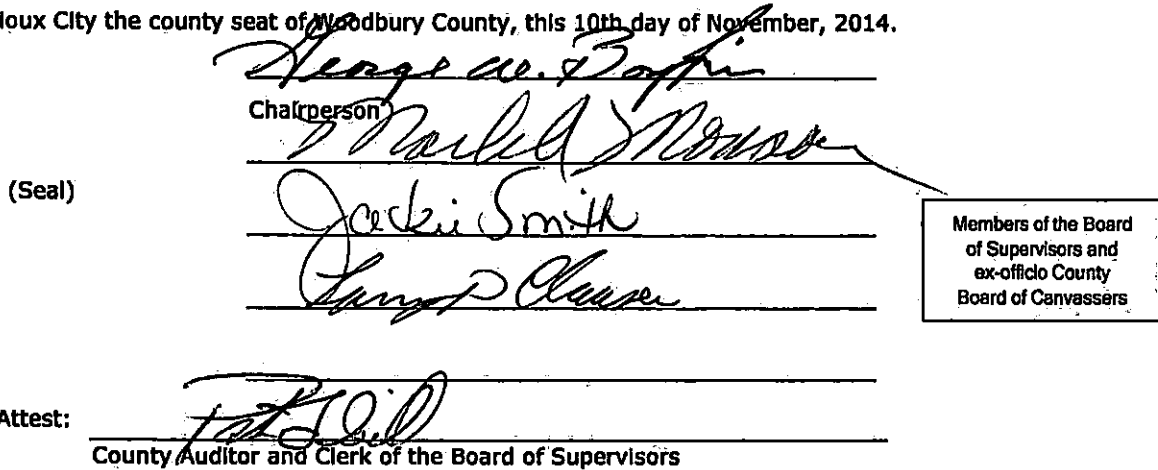 ioux City the county seat of Woodbury County, this 10th day of November, 2014.
George W. Boykin
Chairperson
Mark A Monson
(Seal)
Jackie Smith
Larry D Clausen
Members of the Board
of Supervisors and
ex-officio County
Board of Canvassers
Attest:
Pat Gill
County Auditor and Clerk of the Board of Supervisors